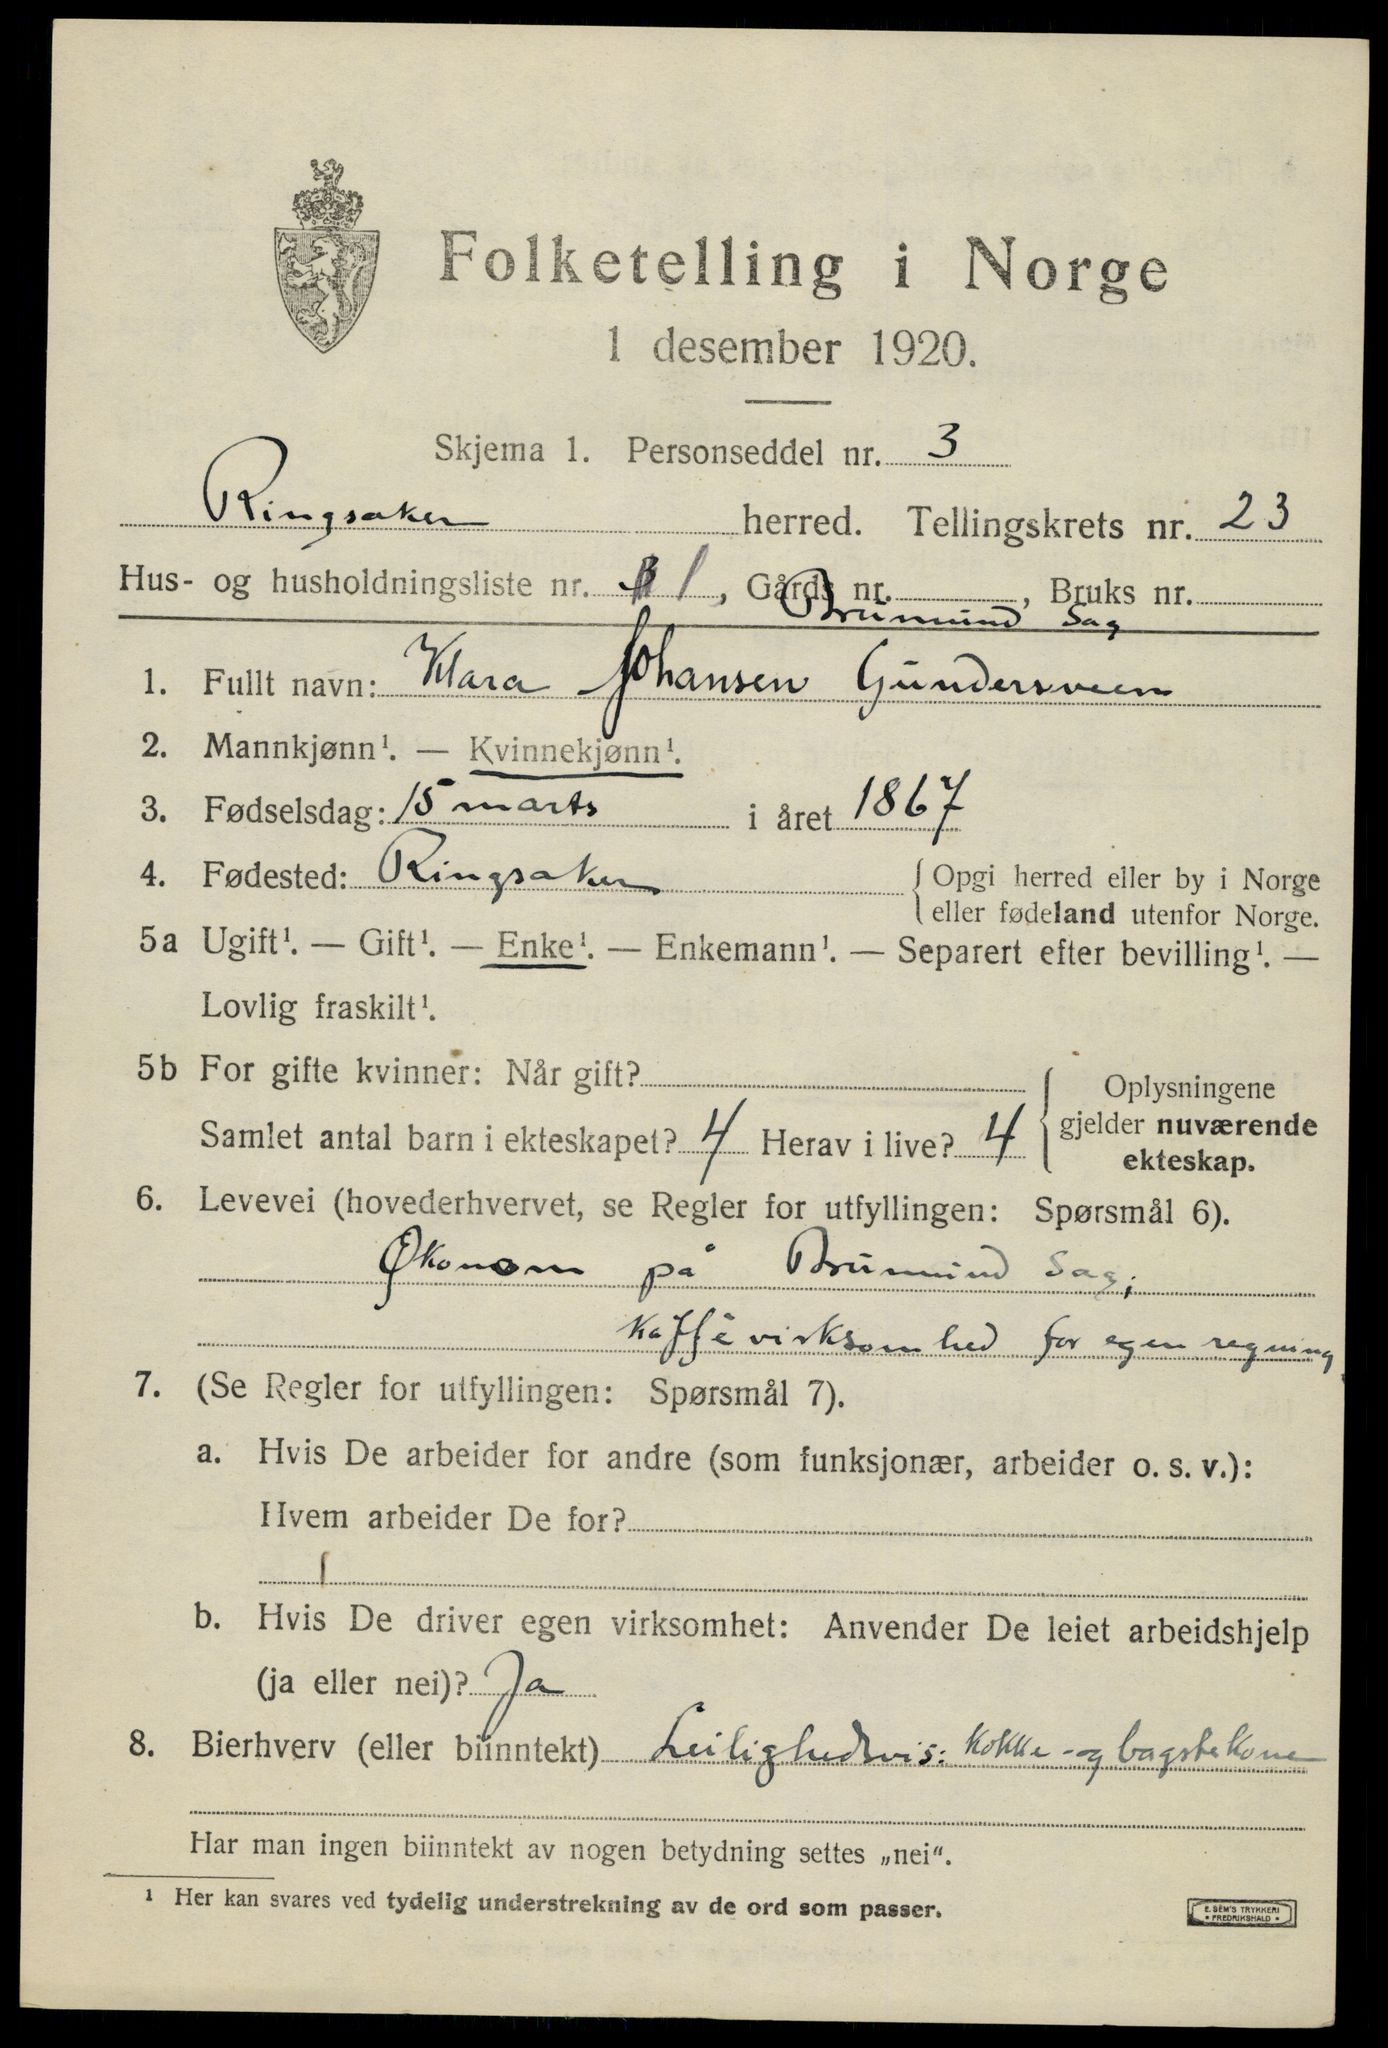 Folketelling i Norge
1 desember 1920.
Skjema 1. Personseddel nr. 3
Ringsaker herred. Tellingskrets nr. 23
Hus- og husholdningsliste nr. 1, Gårds nr. , Bruks nr.
Brumund Sag
1. Fullt navn: Klara Johansen Gundersveen
2. Mannkjønn¹. — Kvinnekjønn¹.
3. Fødselsdag: 15 marts i året 1867
4. Fødested: Ringsaker { Opgi herred eller by i Norge
eller fødeland utenfor Norge.
5a Ugift¹. — Gift¹. — Enke¹. — Enkemann¹. — Separert efter bevilling¹. —
Lovlig fraskilt¹.
5b For gifte kvinner: Når gift? { Oplysningene
Samlet antal barn i ekteskapet? 4 Herav i live? 4 gjelder nuværende
ekteskap.
6. Levevei (hovederhvervet, se Regler for utfyllingen: Spørsmål 6).
Økonom på Brumund Sag;
Kaffévirksomhed for egen regning.
7. (Se Regler for utfyllingen: Spørsmål 7).
a. Hvis De arbeider for andre (som funksjonær, arbeider o. s. v.):
Hvem arbeider De for?
b. Hvis De driver egen virksomhet: Anvender De leiet arbeidshjelp
(ja eller nei)? Ja
8. Bierhverv (eller biinntekt) Leilighedsvis: Kokke- og bagstekone
Har man ingen biinntekt av nogen betydning settes „nei“.
¹ Her kan svares ved tydelig understrekning av de ord som passer.
E. SEM'S TRYKKERI
• FREDRIKSHALD •